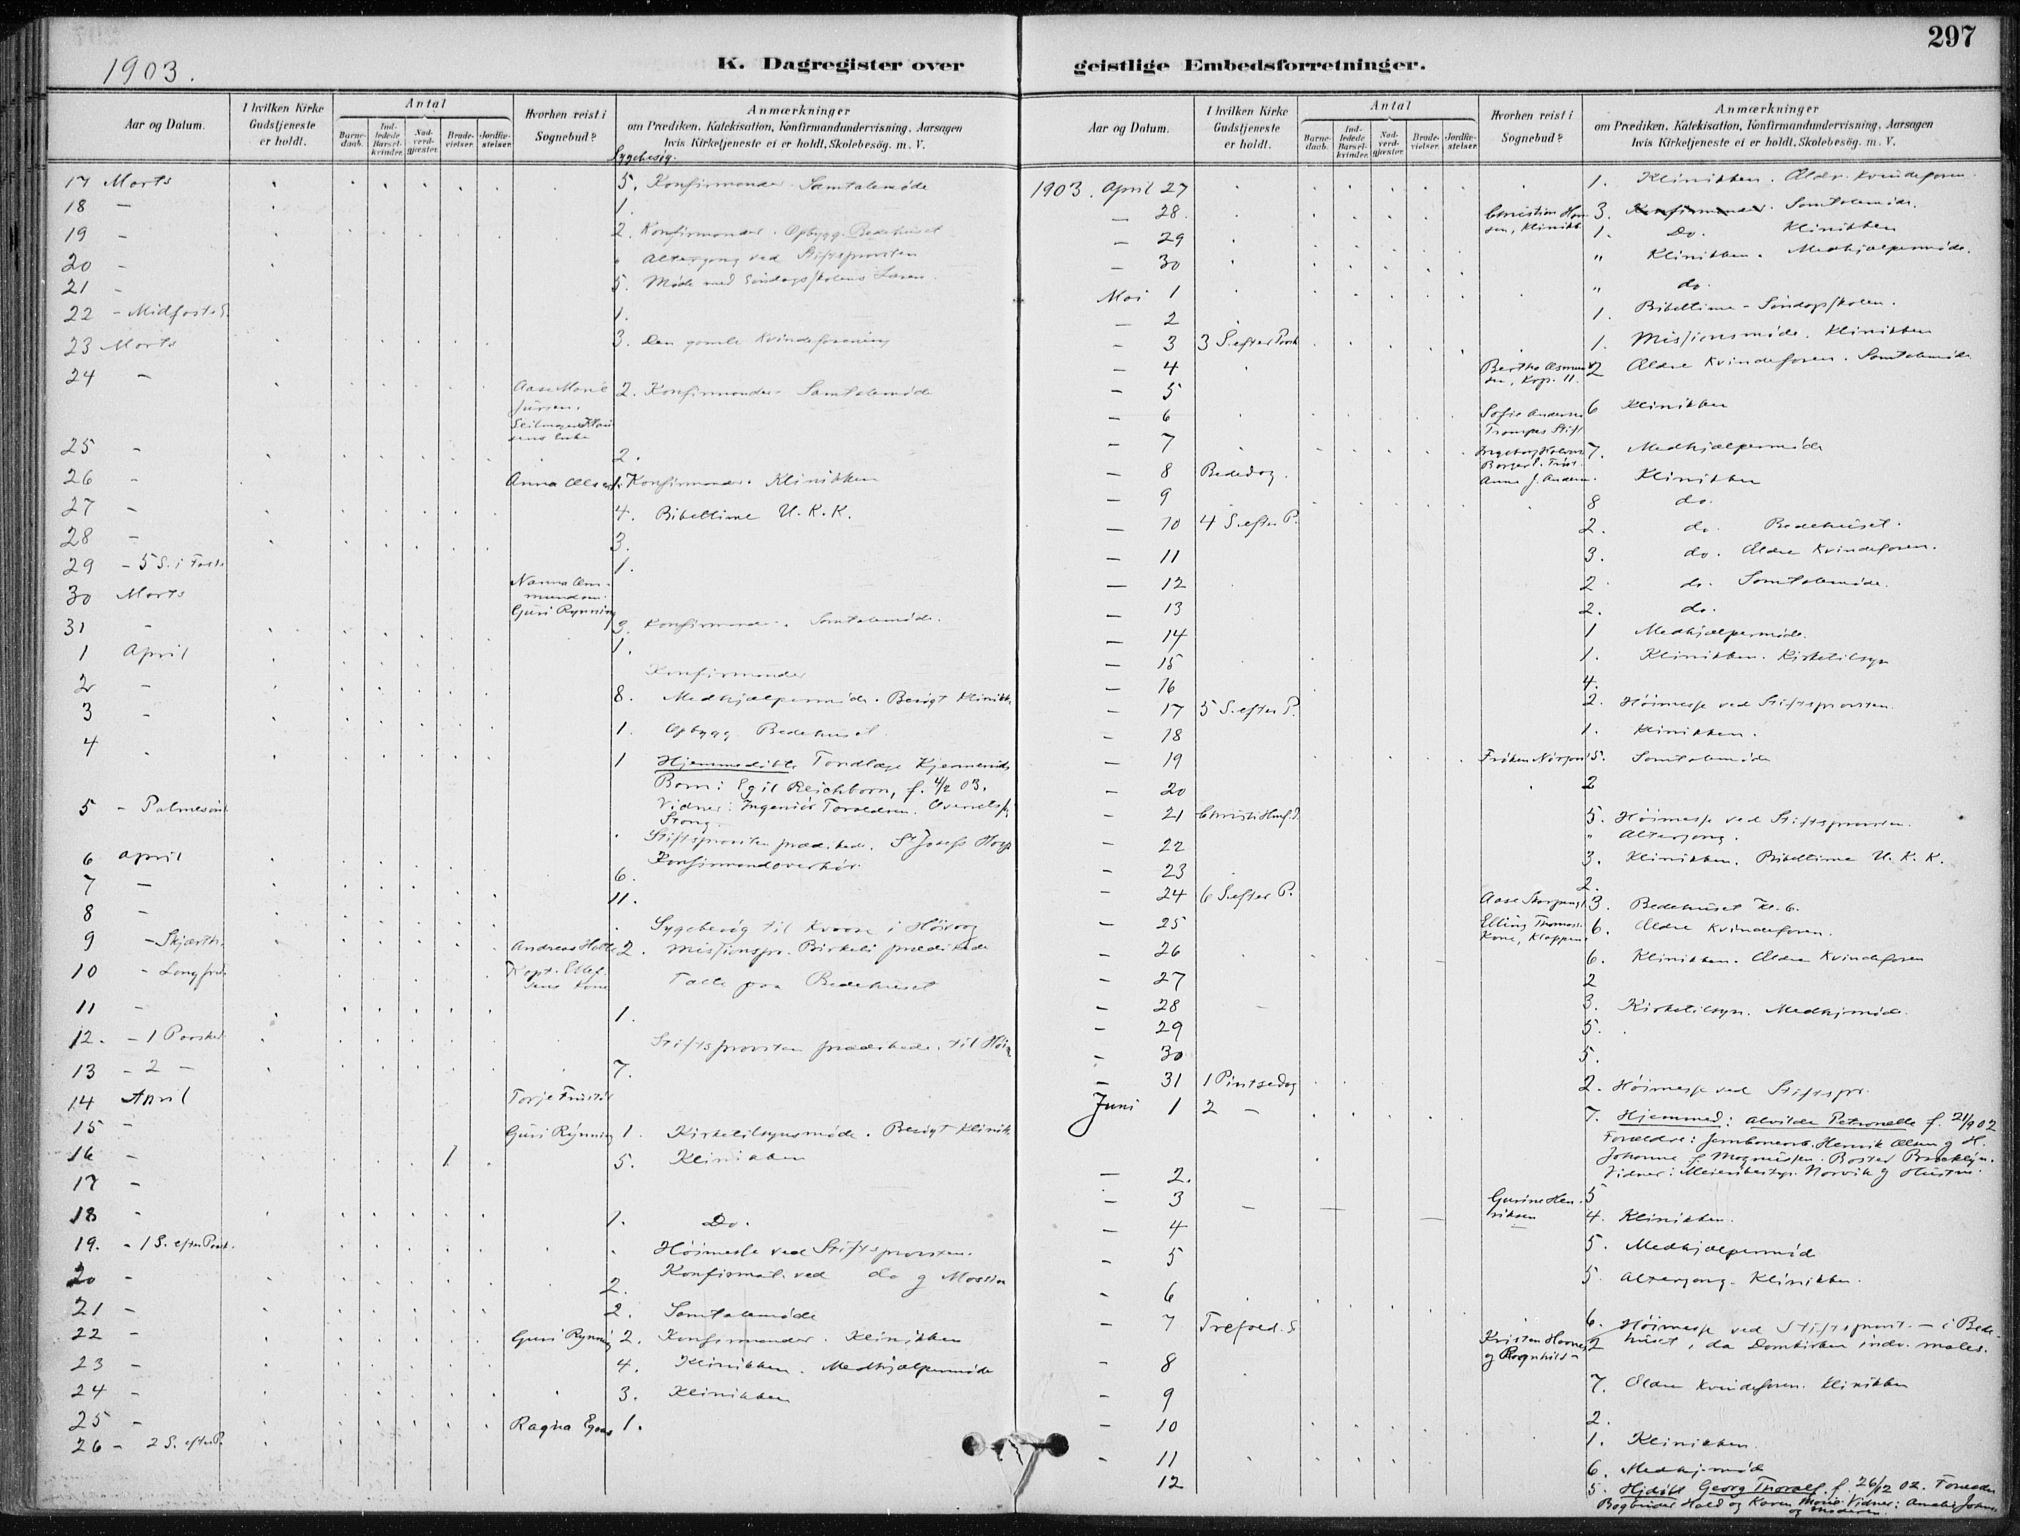 297
1903.
K. Dagregister over geistlige Embedsforretninger.
Aar og Datum.
I hvilken Kirke Gudstjeneste er holdt.
Antal
Barne-daab.
Ind-ledede Barsel-kvinder.
Nad-verd-gjæster.
Brude-vielser.
Jordfæ-stelser.
Hvorhen reist i Sognebud?
Anmærkninger
om Prædiken, Katekisation, Konfirmandundervisning, Aarsagen
hvis Kirketjeneste ei er holdt, Skolebesög. m. V.
Sygebesøg.
17 Marts 5. Konfirmander. Samtalemøde
18 — 1.
19 - 2. Konfirmander. Opbygg. Bedehuset
20 - Altergang ved Stiftsprovsten
21 - 5. Møde med Søndagsskolens Lærer.
22 - Midfaste S. 1.
23 Marts 3. Den gamle Kvindeforening
24 - Aase Marie 2. Konfirmander. Samtalemøde
25 - 2.
26 - Anna 1. Konfirmander. Klinikken
27 - 4. Bibeltime U. K. K.
28 - 3.
29 - 5 S. i Faste 1.
30 Marts
Guri Rynning
31 - 3. Konfirmander. Samtalemøde.
1 April 1.
2 - Konfirmander
3 - 8. Medhjælpermøde. Besøgt Klinikk.
4 - 1. Opbygg Bedehuset
1 Hjemmedøbt Tandlæge
Barn: Egil Reichborn, f. 4/2 03.
Vidner: Ingeniør
5 - Palmesønd
Stiftsprovsten prædikede. St Josefs Hosp
6 April Konfirmandoverhør.
6.
7 — 11.
8 —
Sygebesøg til Kone i
9 - Skjærth. Andreas Holte 2. Missionspr. Birkeli prædikede
10 - Langfred. Kapt.
Tale paa Bedehuset
11 - 1.
12. - 1 Paaske Stiftsprovsten prædikede.
13 - 2 - 7.
14 April Torje
15 - Guri Rynning 1. Kirketilsynsmøde. Besøgt Klinik
16 - 1 5. Klinikken
17 -
18 - 1. Do.
19. - 1 S. efter Paask. Høimesse ved Stiftsprovsten.
20 - Konfirmat. ved do
2.
21 - 2. Samtalemøde
22 - Guri Rynning 2. Konfirmander. Klinikken
23 - 4. Klinikken. Medhjælpermøde
24 - 3. Klinikken
25 - Ragna 1.
26 - 2 S. efter P.
Aar og Datum.
I hvilken Kirke Gudstjeneste er holdt.
Antal
Barne-daab.
Ind-ledede Barsel-kvinder.
Nad-verd-gjæster.
Brude-vielser.
Jordfæ-stelser.
Hvorhen reist i Sognebud?
Anmærkninger
om Prædiken, Katekisation, Konfirmandundervisning, Aarsagen
hvis Kirketjeneste ei er holdt, Skolebesög. m. V.
1903. April 27 1. Klinikken. Ældr. Kvindeforen.
— 28. Christian Han-sen, Klinikk. 3. Konfirmander. Samtalemøde.
— 29 1. Do. Klinikken
— 30 " Klinikken. Medhjælpermøde.
Mai 1 " do.
— 2 1. Bibeltime - Søndagsskolen.
— 3 3 S. efter Paask 1. Missionsmøde. Klinikken
— 4 Bertha 2 Ældre Kvindeforen. Samtalemøde
— 5
— 6 Sofie Andersen 6 Klinikken
Stift
— 7 7. Medhjælpermøde
— 8 Bededag. Anna J. Andersen. Klinikken
— 9 8 do.
— 10 4 S. efter P. 2. do. Bedehuset.
— 11 3. do. Ældre Kvindeforen.
— 12 2 do. Samtalemøde.
— 13 2. do.
— 14 1 Medhjælpermøde.
— 15 1. Klinikken. Kirketilsyn
— 16 4.
— 17 5 S. efter P. 2. Høimesse ved Stiftsprovsten.
— 18 1. Klinikken.
— 19 Frøken 5. Samtalemøde
— 20 2
— 21 Christi Himf. D. 5. Høimesse ved Stiftsprovsten.
— 22 " Altergang.
— 23 3. Klinikken. Bibeltime U. K. K.
2.
— 24 6 S. efter P. Aase 3. Bedehuset Kl. 6.
— 25 Kone, 6. Ældre Kvindeforen.
— 26 6. Klinikken. Ældre Kvindeforen
— 27 2
— 28 3. Kirketilsyn. Medhjmøde.
— 29 5.
— 30 5.
— 31 1 Pintsedag 2. Høimesse ved Stiftspr.
Juni 1 2 — 7. Hjemmed: Alvilde Petronelle f. 21/9 02
Forældre: Henrik Olsen og H.
Johanne f. Magnussen. Bosted Brooklyn.
Vidner:
— 2.
— 3 Gurine Hen-riksen 5
— 4 4. Klinikken.
- 5 5. Medhjælpermøde
- 6 5. Altergang. Klinikken.
- 7 Trefold. S. 6. Høimesse ved Stiftsprovst. — i Bede-
- 8 Kristen og Ragnhild - 2 huset, da Domkirken indv. males.
- 9 7. Ældre Kvindeforen. Klinikken
- 10 2.
- 11 1. Klinikken.
12 6. Medhj.møde
5. Hjdøbt Georg Thoralf f. 26/12 02. Forældre
Bogbinder Hald og Karen Marie. Vidner: Amalie
og Moderen.